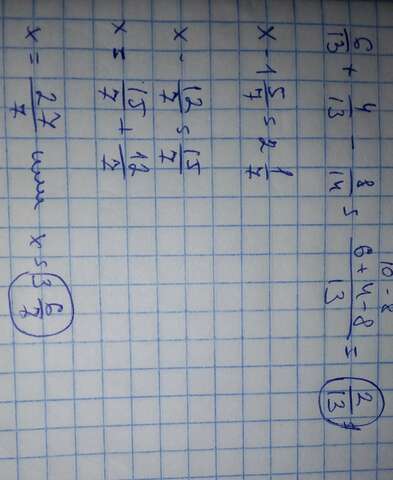 10 - 8
6/13 + 4/13 - 8/14 = 6+4-8/13 = 2/13
x - 1 5/7 = 2 1/7
x - 12/7 = 15/7
x = 15/7 + 12/7
x = 27/7 или x = 3 6/7